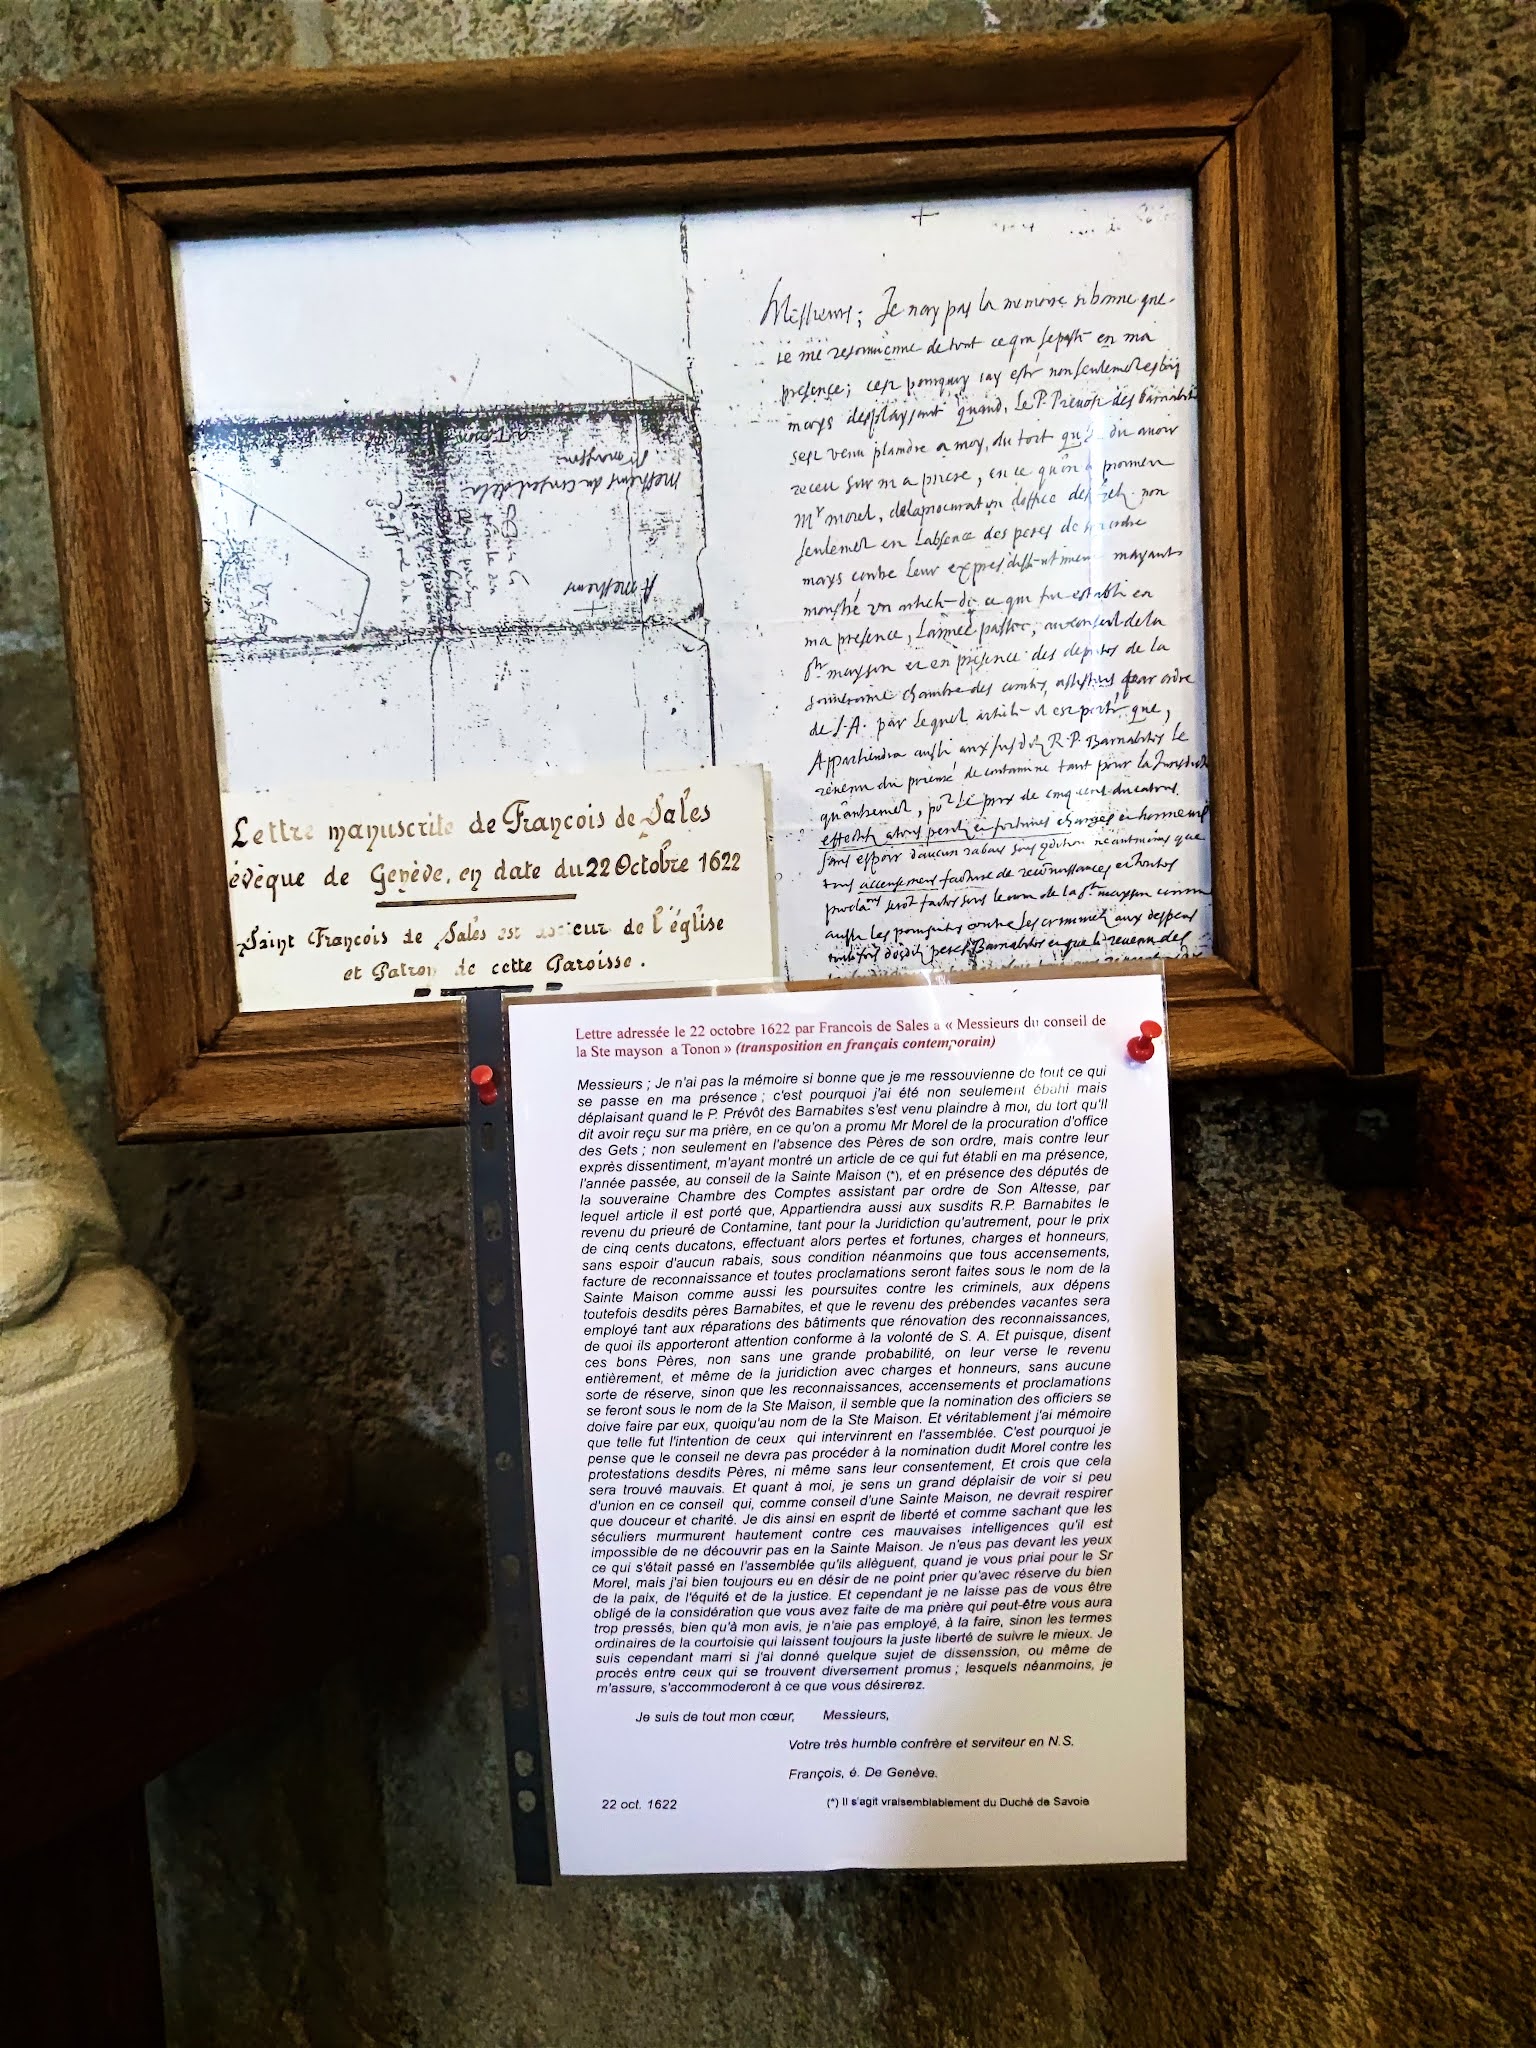 Messieurs; Je nay pas la memoire si bonne que
presence; cest pourquoy jay esté non seulement
mays desplaysant quand, le P. Prevost des Barnabites
sest venu plaindre a moy, du tort qu'il dit avoir
receu sur ma priere, en ce qu'on a promeu
Mr morel, de la procuration doffice des Getz non
seulement en labsence des peres de son ordre
mays contre leur expres dissentiment mayant
monstré un article de ce qui fut establi en
ma presence, lannee passee, au conseil de la
Ste mayson et en presence des deputés de la
souveraine chambre des comtes, assistans par ordre
de S. A. par lequel article il est porté que,
Appartiendra aussi aux susditz R. P. Barnabites le
revenu du prieuré de contamine tant pour la Jurisdiction
qu'autrement, pour le prix de cinq cens ducatons
sans espoir d'aucun rabais sous condition neantmoins que
aussi les poursuites contre les criminelz aux despens
A Messieurs
Messieurs du conseil de la
Ste mayson
a Tonon
Lettre manuscrite de François de Sales
évêque de Genève, en date du 22 Octobre 1622
Saint François de Sales est de l'église
et Patron de cette Paroisse.
Lettre adressée le 22 octobre 1622 par Francois de Sales a « Messieurs du conseil de
la Ste mayson a Tonon » (transposition en français contemporain)
Messieurs ; Je n'ai pas la mémoire si bonne que je me ressouvienne de tout ce qui
se passe en ma présence ; c'est pourquoi j'ai été non seulement ébahi mais
déplaisant quand le P. Prévôt des Barnabites s'est venu plaindre à moi, du tort qu'il
dit avoir reçu sur ma prière, en ce qu'on a promu Mr Morel de la procuration d'office
des Gets ; non seulement en l'absence des Pères de son ordre, mais contre leur
exprès dissentiment, m'ayant montré un article de ce qui fut établi en ma présence,
l'année passée, au conseil de la Sainte Maison (*), et en présence des députés de
la souveraine Chambre des Comptes assistant par ordre de Son Altesse, par
lequel article il est porté que, Appartiendra aussi aux susdits R.P. Barnabites le
revenu du prieuré de Contamine, tant pour la Juridiction qu'autrement, pour le prix
de cinq cents ducatons, effectuant alors pertes et fortunes, charges et honneurs,
sans espoir d'aucun rabais, sous condition néanmoins que tous accensements,
facture de reconnaissance et toutes proclamations seront faites sous le nom de la
Sainte Maison comme aussi les poursuites contre les criminels, aux dépens
toutefois desdits pères Barnabites, et que le revenu des prébendes vacantes sera
employé tant aux réparations des bâtiments que rénovation des reconnaissances,
de quoi ils apporteront attention conforme à la volonté de S. A. Et puisque, disent
ces bons Pères, non sans une grande probabilité, on leur verse le revenu
entièrement, et même de la juridiction avec charges et honneurs, sans aucune
sorte de réserve, sinon que les reconnaissances, accensements et proclamations
se feront sous le nom de la Ste Maison, il semble que la nomination des officiers se
doive faire par eux, quoiqu'au nom de la Ste Maison. Et véritablement j'ai mémoire
que telle fut l'intention de ceux qui intervinrent en l'assemblée. C'est pourquoi je
pense que le conseil ne devra pas procéder à la nomination dudit Morel contre les
protestations desdits Pères, ni même sans leur consentement, Et crois que cela
sera trouvé mauvais. Et quant à moi, je sens un grand déplaisir de voir si peu
d'union en ce conseil qui, comme conseil d'une Sainte Maison, ne devrait respirer
que douceur et charité. Je dis ainsi en esprit de liberté et comme sachant que les
séculiers murmurent hautement contre ces mauvaises intelligences qu'il est
impossible de ne découvrir pas en la Sainte Maison. Je n'eus pas devant les yeux
ce qui s'était passé en l'assemblée qu'ils allèguent, quand je vous priai pour le Sr
Morel, mais j'ai bien toujours eu en désir de ne point prier qu'avec réserve du bien
de la paix, de l'équité et de la justice. Et cependant je ne laisse pas de vous être
obligé de la considération que vous avez faite de ma prière qui peut-être vous aura
trop pressés, bien qu'à mon avis, je n'aie pas employé, à la faire, sinon les termes
ordinaires de la courtoisie qui laissent toujours la juste liberté de suivre le mieux. Je
suis cependant marri si j'ai donné quelque sujet de dissenssion, ou même de
procès entre ceux qui se trouvent diversement promus ; lesquels néanmoins, je
m'assure, s'accommoderont à ce que vous désirerez.
Je suis de tout mon cœur, Messieurs,
Votre très humble confrère et serviteur en N.S.
François, é. De Genève.
22 oct. 1622 (*) Il s'agit vraisemblablement du Duché de Savoie